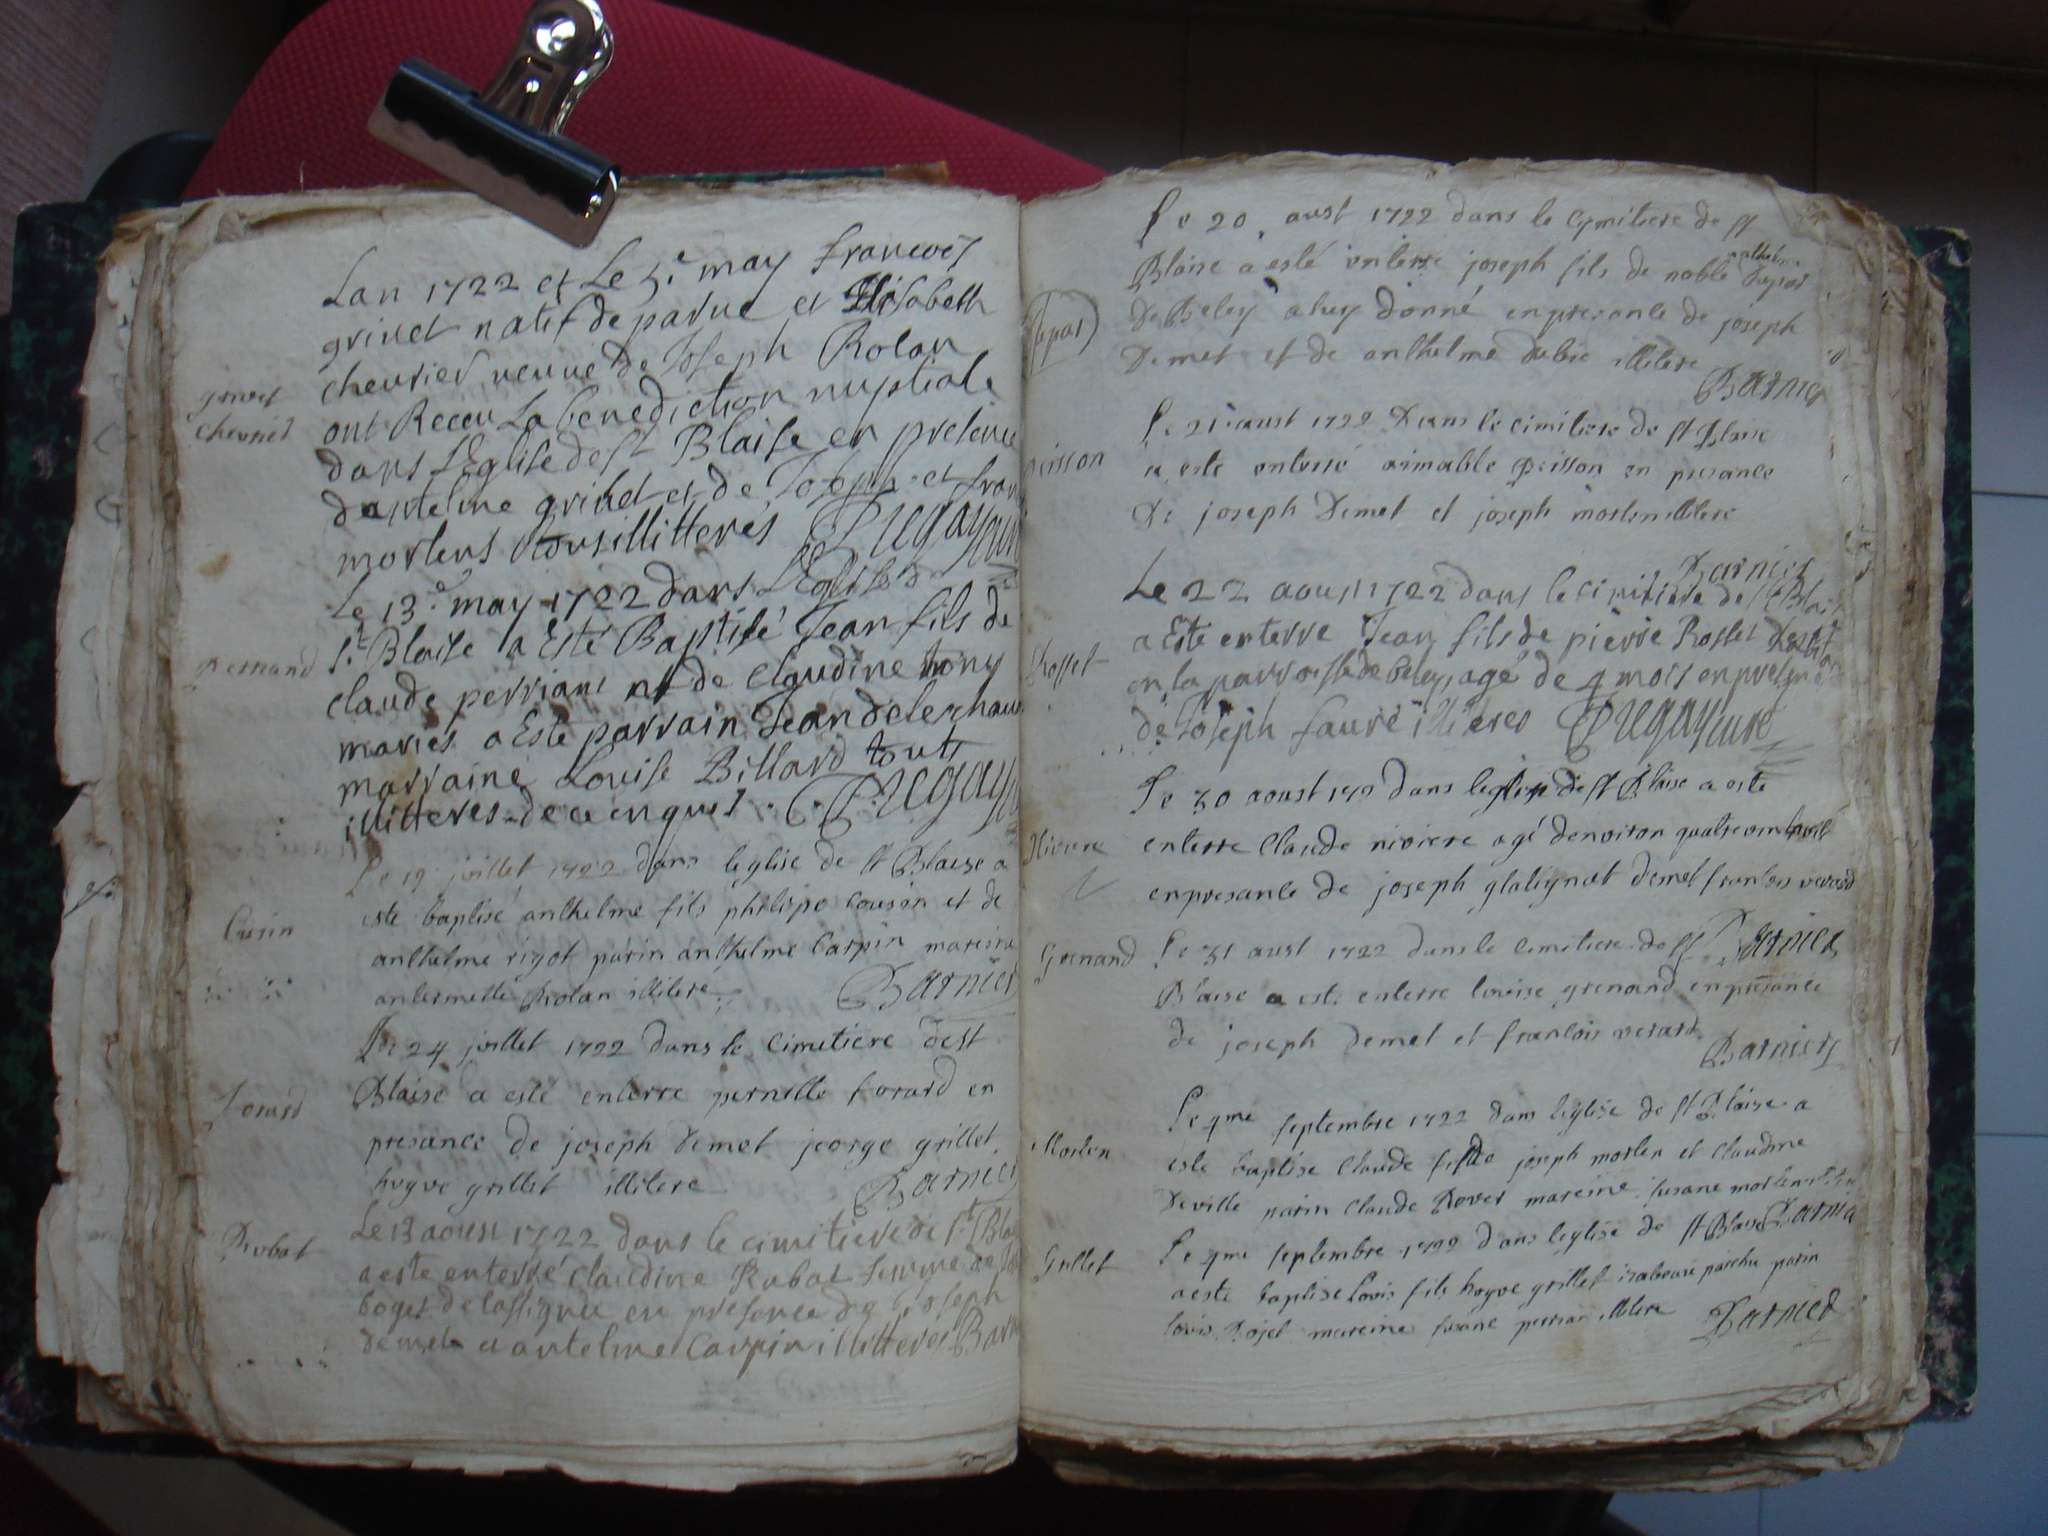 Lan 1722 et Le 5.e may francois
grivet natif de parve et Elisabeth
grivet
chevrier
chevrier veuve de Joseph Rolan
ont Receu La benediction nuptiale
dans L'Eglise de St Blaise en presence
dantelme grivet et de Joseph et fran
mortens tous illitteres Pregay cure
Le 13.e may 1722 dans L'Eglise de
St Blaise a Esté Baptisé Jean fils de
claude perrian et de claudine tony
mariés a Esté parrain Jean
marraine Louise Billard touts
illitteres de ce enquis Pregay
Cusin
Le 19 juillet 1722 dans leglise de st Blaise a
este baptisé anthelme fils philipe cousin et de
anthelme rigot parin anthelme Carpin mareine
antermette Rolan illitere Barnier
forard
Le 24 juillet 1722 dans le cimetiere dest
Blaise a esté enterre pernette forard en
presance de joseph Demet jeorge grillet
hugue grillet illitere Barnier
Rubat
Le 13 aoust 1722 dans le cimitiere de St Bla
a este enterré claudine Rubat femme de
boget de en presence de Joseph
demet et antelme Carpin illitteres Barn
Le 20. aust 1722 dans le cymitiere de st
Blaise a esté enterre joseph fils de noble anthelme
De Beley a luy donné en presance de joseph
Demet et de anthelme illitere
Barnier
peisson
Le 21 aust 1722 Dans le cimitiere de st Blaise
a este enterré aimable peisson en presance
De joseph Demet et joseph morten illitere
Barnier
Rosset
Le 22 aoust 1722 dans le cimitiere de St Blaise
a Esté enterre Jean fils de pierre Rosset
en la parroisse de beley, agé de 4 mois en presence
de Joseph faure illiteres Pregay curé
Niviere
Le 30 aoust 1722 dans leglise de st Blaise a este
enterre Claude niviere agé denviron quatre vint
en presance de joseph glatignat demet francois verard
Barnier
Grenand
Le 31 aust 1722 dans le cimitiere de st
Blaise a este enterre louise grenand en presance
de joseph demet et francois verard
Barnier
Morten
Le 4me septembre 1722 dans leglise de st Blaise a
este baptise Claude fils de joseph morten et Claudine
Deville parin Claude Rover mareine susane morten
Barnier
Grillet
Le 4me septembre 1722 dans leglise de st Blaise
a este baptise Louis fils hugue grillet isabeau parin
louis Rojet mareine susane perrian illitere Barnier